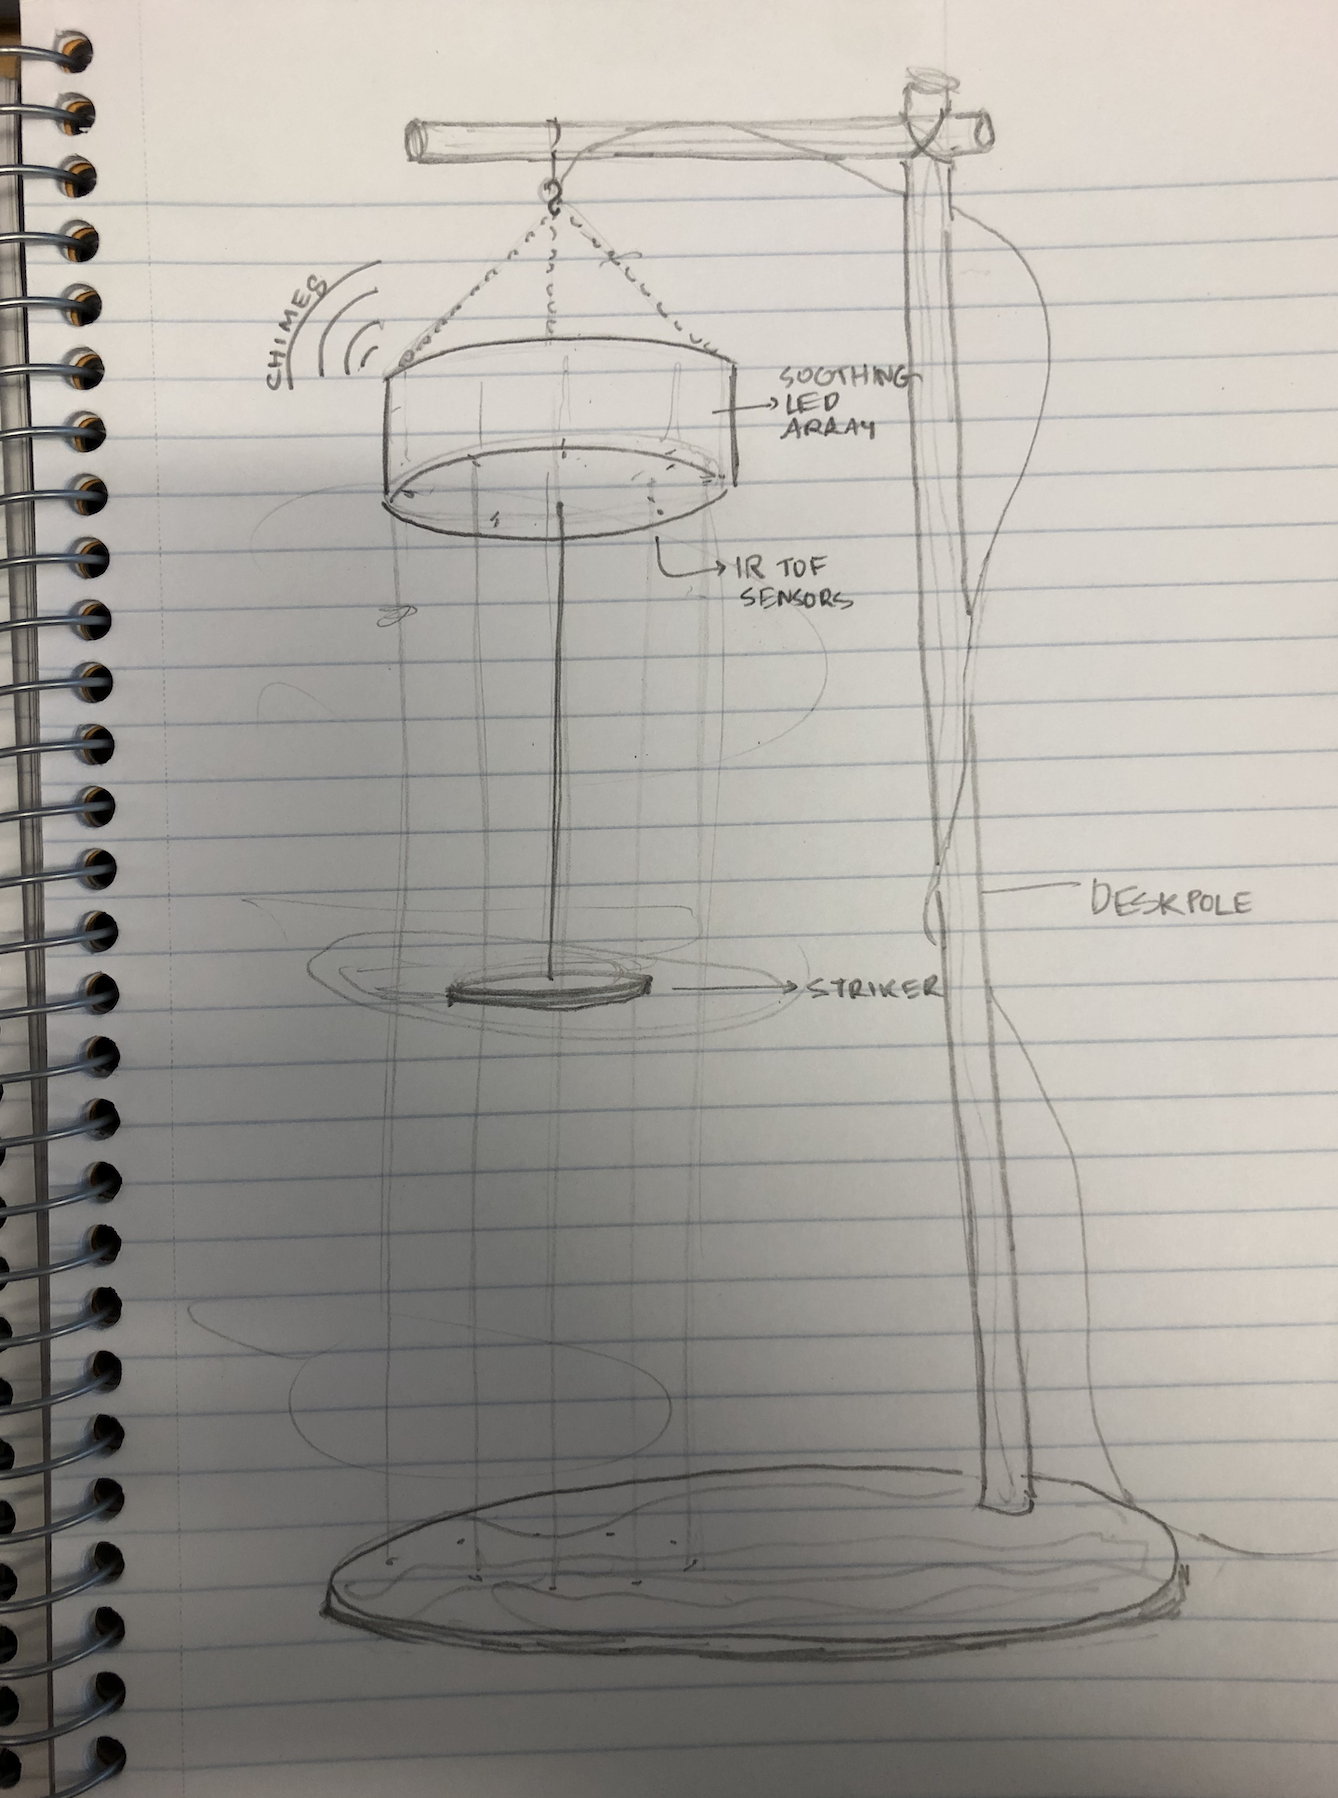 CHIMES
SOOTHING
LED
ARRAY
IR TOF
SENSORS
DESKPOLE
STRIKER